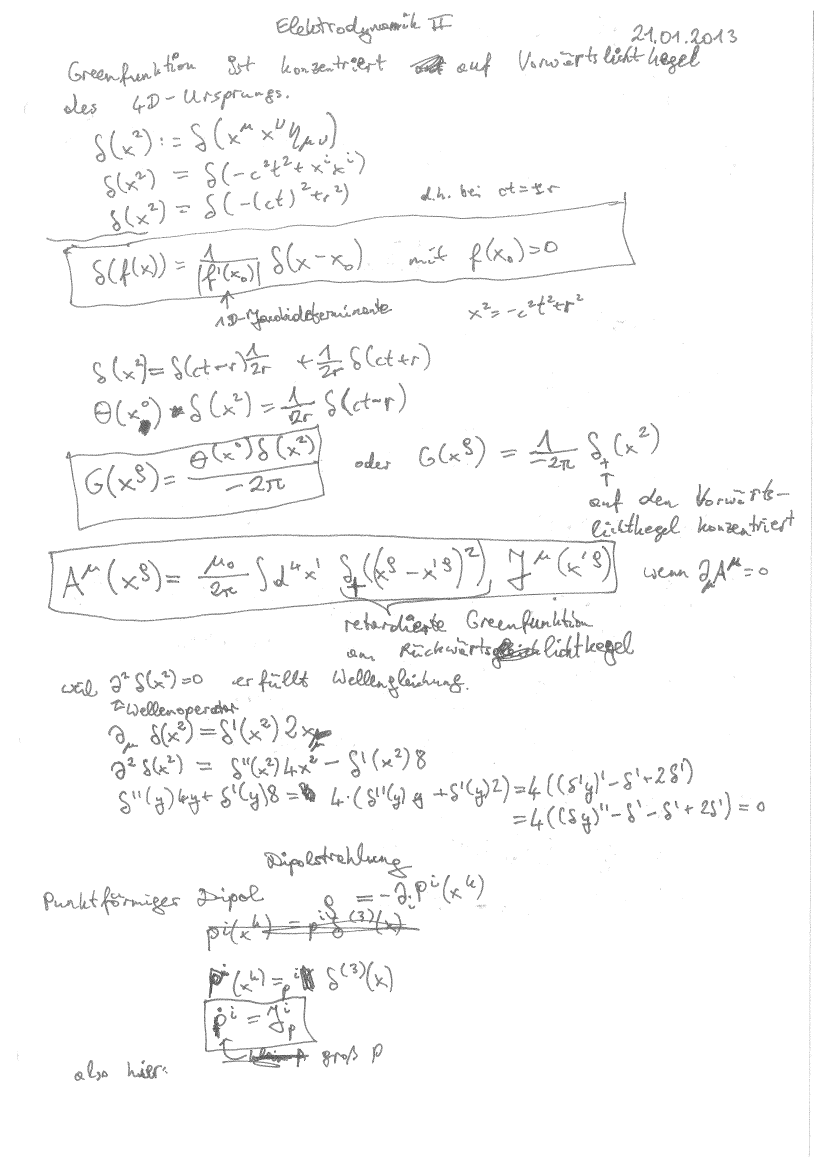 Elektrodynamik II
21.01.2013
Greenfunktion ist konzentriert auf Vorwärtslichtkegel
des 4D-Ursprungs.
δ(x²) := δ(x^μ x^ν η_μν)
δ(x²) = δ(-c²t² + x^i x^i)
δ(x²) = δ(-(ct)² + r²) d.h. bei ct = ±r
δ(f(x)) = 1/|f'(x₀)| δ(x-x₀) mit f(x₀) = 0
↑
1D-Jacobideterminante x² = -c²t² + r²
δ(x²) = δ(ct-r) 1/2r + 1/2r δ(ct+r)
Θ(x⁰) · δ(x²) = 1/2r δ(ct-r)
G(x^ρ) = Θ(x⁰) δ(x²) / -2π oder G(x^ρ) = 1/-2π δ₊(x²)
↑
auf den Vorwärts-
lichtkegel konzentriert
A^μ(x^ρ) = μ₀/2π ∫ d⁴x' δ₊((x^ρ - x'^ρ)²) J^μ(x'^ρ) wenn ∂_μ A^μ = 0
retardierte Greenfunktion
am Rückwärtslichtkegel
weil ∂² δ(x²) = 0 erfüllt Wellengleichung.
↑Wellenoperator
∂_μ δ(x²) = δ'(x²) 2x_μ
∂² δ(x²) = δ''(x²) 4x² - δ'(x²) 8
δ''(y) 4y + δ'(y) 8 = 4·(δ''(y) y + δ'(y) 2) = 4((δ'y)' - δ' + 2δ')
= 4((δy)'' - δ' - δ' + 2δ') = 0
Dipolstrahlung
Punktförmiges Dipol ρ = -∂_i P^i(x^k)
P^i(x^k) = p^i δ^(3)(x)
P^i(x^k) = p^i δ^(3)(x)
Ṗ^i = J^i_p
groß P
also hier: